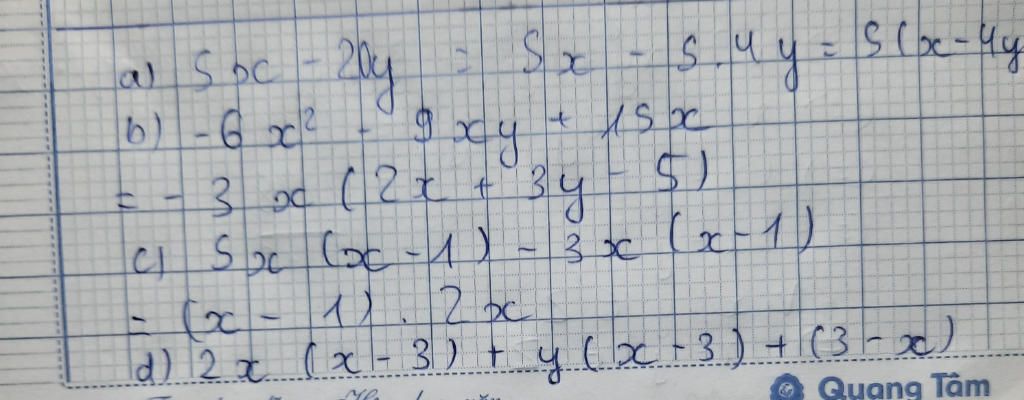 a) 5x - 20y = 5x - 5.4y = 5(x-4y
b) -6x² - 9xy + 15x
= - 3x(2x + 3y - 5)
c) 5x(x-1) - 3x(x-1)
= (x - 1). 2x
d) 2x(x-3) + y(x-3) + (3-x)
Quang Tâm